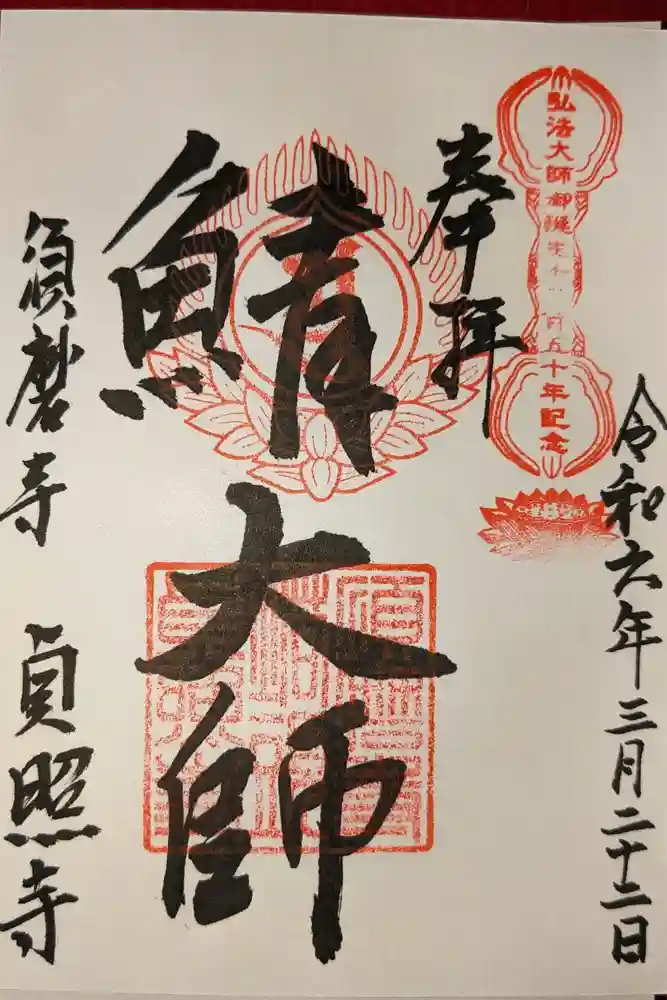 令和六年三月二十二日
弘法大師御誕生千二百五十年記念
奉拝
鯖大師
須磨寺 貞照寺